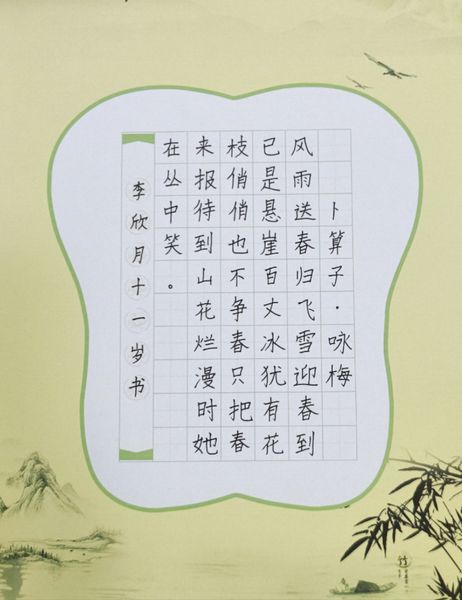 卜算子·咏梅
风雨送春归飞雪迎春到
已是悬崖百丈冰犹有花
枝俏俏也不争春只把春
来报待到山花烂漫时她
在丛中笑。
李欣月十一岁书